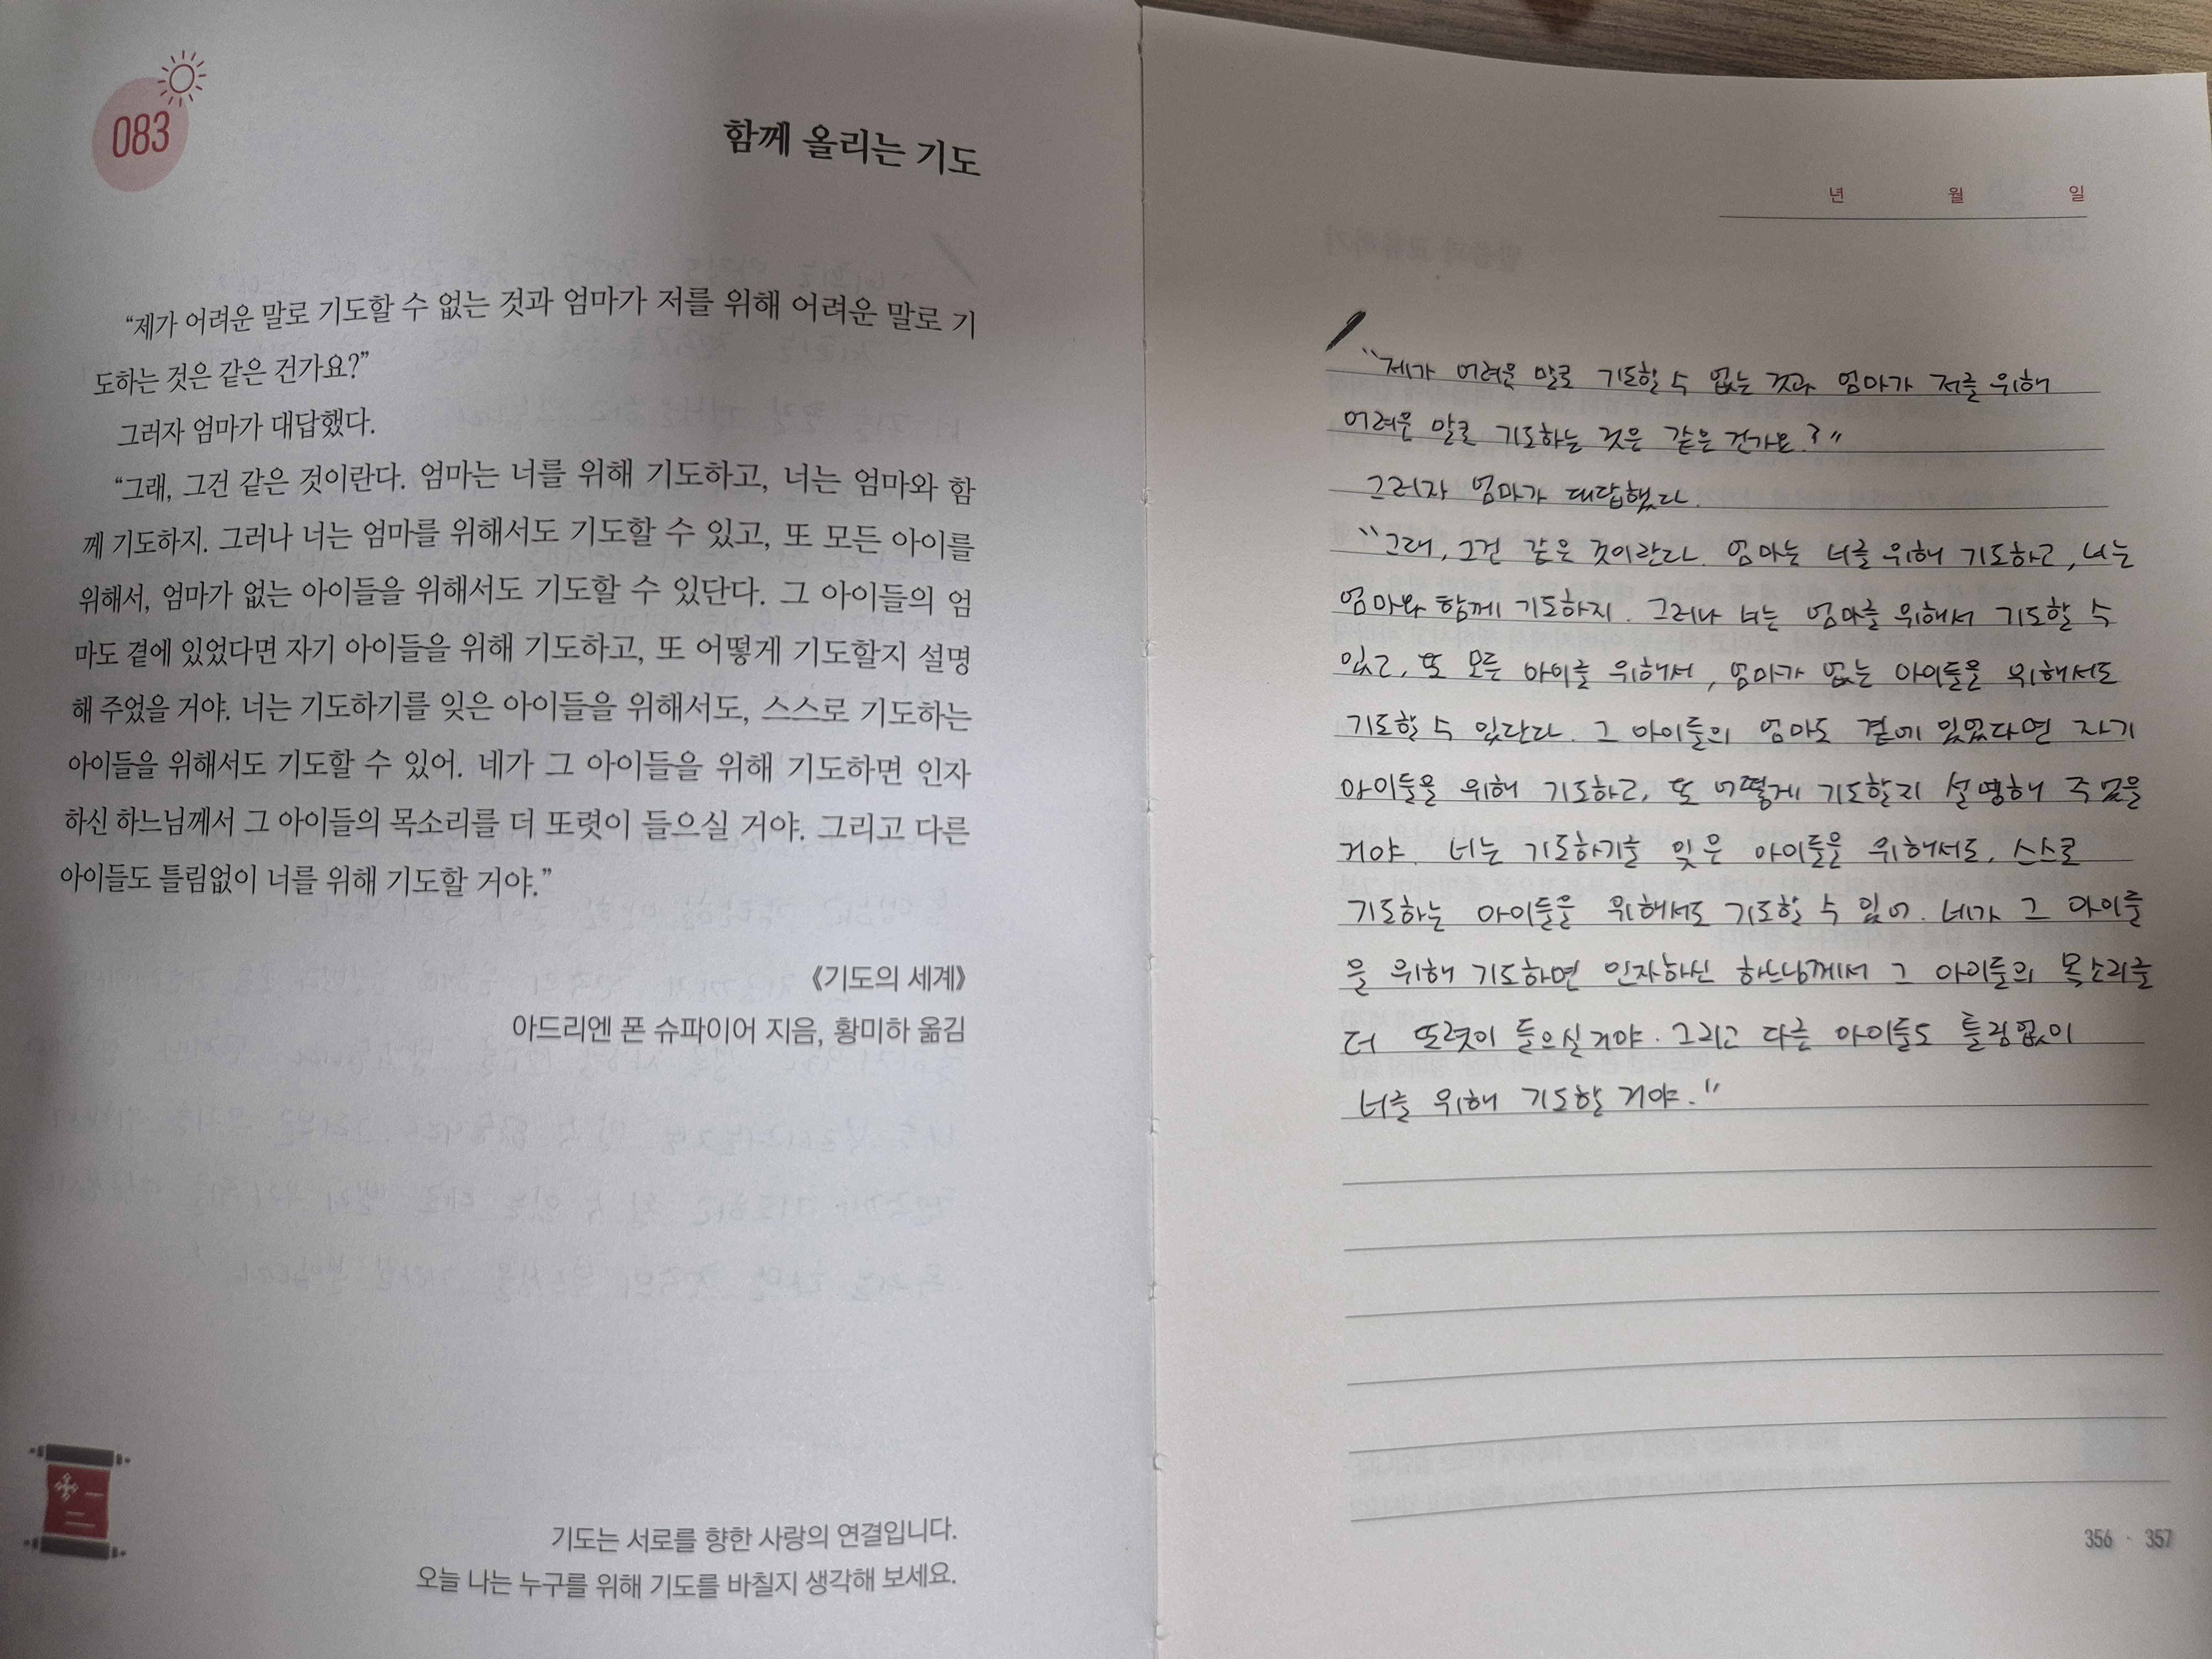 083
함께 올리는 기도
“제가 어려운 말로 기도할 수 없는 것과 엄마가 저를 위해 어려운 말로 기
도하는 것은 같은 건가요?”
그러자 엄마가 대답했다.
“그래, 그건 같은 것이란다. 엄마는 너를 위해 기도하고, 너는 엄마와 함
께 기도하지. 그러나 너는 엄마를 위해서도 기도할 수 있고, 또 모든 아이를
위해서, 엄마가 없는 아이들을 위해서도 기도할 수 있단다. 그 아이들의 엄
마도 곁에 있었다면 자기 아이들을 위해 기도하고, 또 어떻게 기도할지 설명
해 주었을 거야. 너는 기도하기를 잊은 아이들을 위해서도, 스스로 기도하는
아이들을 위해서도 기도할 수 있어. 네가 그 아이들을 위해 기도하면 인자
하신 하느님께서 그 아이들의 목소리를 더 또렷이 들으실 거야. 그리고 다른
아이들도 틀림없이 너를 위해 기도할 거야.”
《기도의 세계》
아드리엔 폰 슈파이어 지음, 황미하 옮김
기도는 서로를 향한 사랑의 연결입니다.
오늘 나는 누구를 위해 기도를 바칠지 생각해 보세요.
년 월 일
“제가 어려운 말로 기도할 수 없는 것과 엄마가 저를 위해
어려운 말로 기도하는 것은 같은 건가요?”
그러자 엄마가 대답했다.
“그래, 그건 같은 것이란다. 엄마는 너를 위해 기도하고, 너는
엄마와 함께 기도하지. 그러나 너는 엄마를 위해서 기도할 수
있고, 또 모든 아이를 위해서, 엄마가 없는 아이들을 위해서도
기도할 수 있단다. 그 아이들의 엄마도 곁에 있었다면 자기
아이들을 위해 기도하고, 또 어떻게 기도할지 설명해 주었을
거야. 너는 기도하기를 잊은 아이들을 위해서도, 스스로
기도하는 아이들을 위해서도 기도할 수 있어. 네가 그 아이들
을 위해 기도하면 인자하신 하느님께서 그 아이들의 목소리를
더 또렷이 들으실 거야. 그리고 다른 아이들도 틀림없이
너를 위해 기도할 거야.”
356 · 357